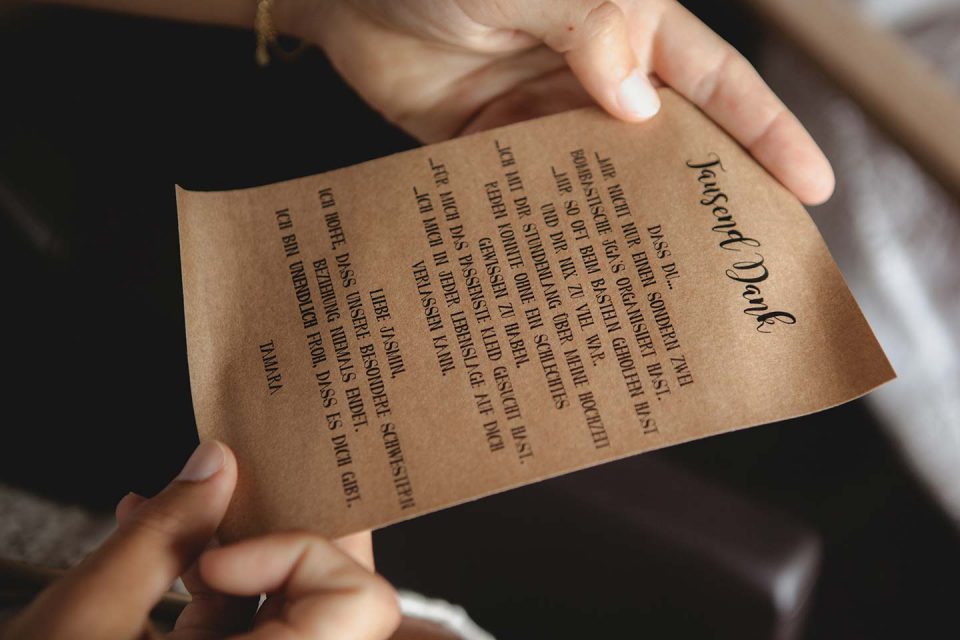 Tausend Dank
DASS DU...
...MIR NICHT NUR EINEN SONDERN ZWEI
BOMBASTISCHE JGA'S ORGANISIERT HAST.
...MIR SO OFT BEIM BASTELN GEHOLFEN HAST
UND DIR NIX ZU VIEL WAR.
...ICH MIT DIR STUNDENLANG ÜBER MEINE HOCHZEIT
REDEN KONNTE OHNE EIN SCHLECHTES
GEWISSEN ZU HABEN.
...FÜR MICH DAS PASSENSTE KLEID GESUCHT HAST.
...ICH MICH IN JEDER LEBENSLAGE AUF DICH
VERLASSEN KANN.
LIEBE JASMIN,
ICH HOFFE, DASS UNSERE BESONDERE SCHWESTERN
BEZIEHUNG NIEMALS ENDET.
ICH BIN UNENDLICH FROH, DASS ES DICH GIBT.
TAMARA